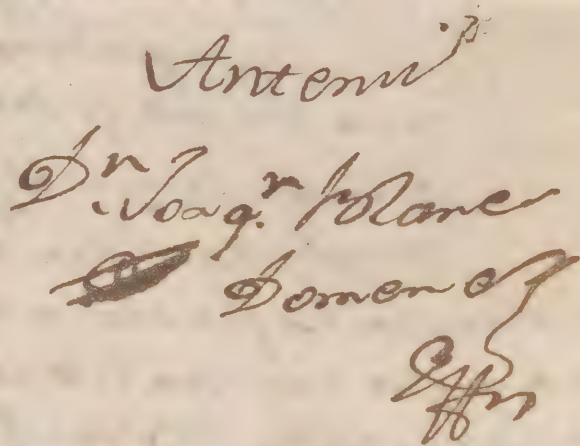 Ante mí
Dn Joaqn Blanc
Domenec